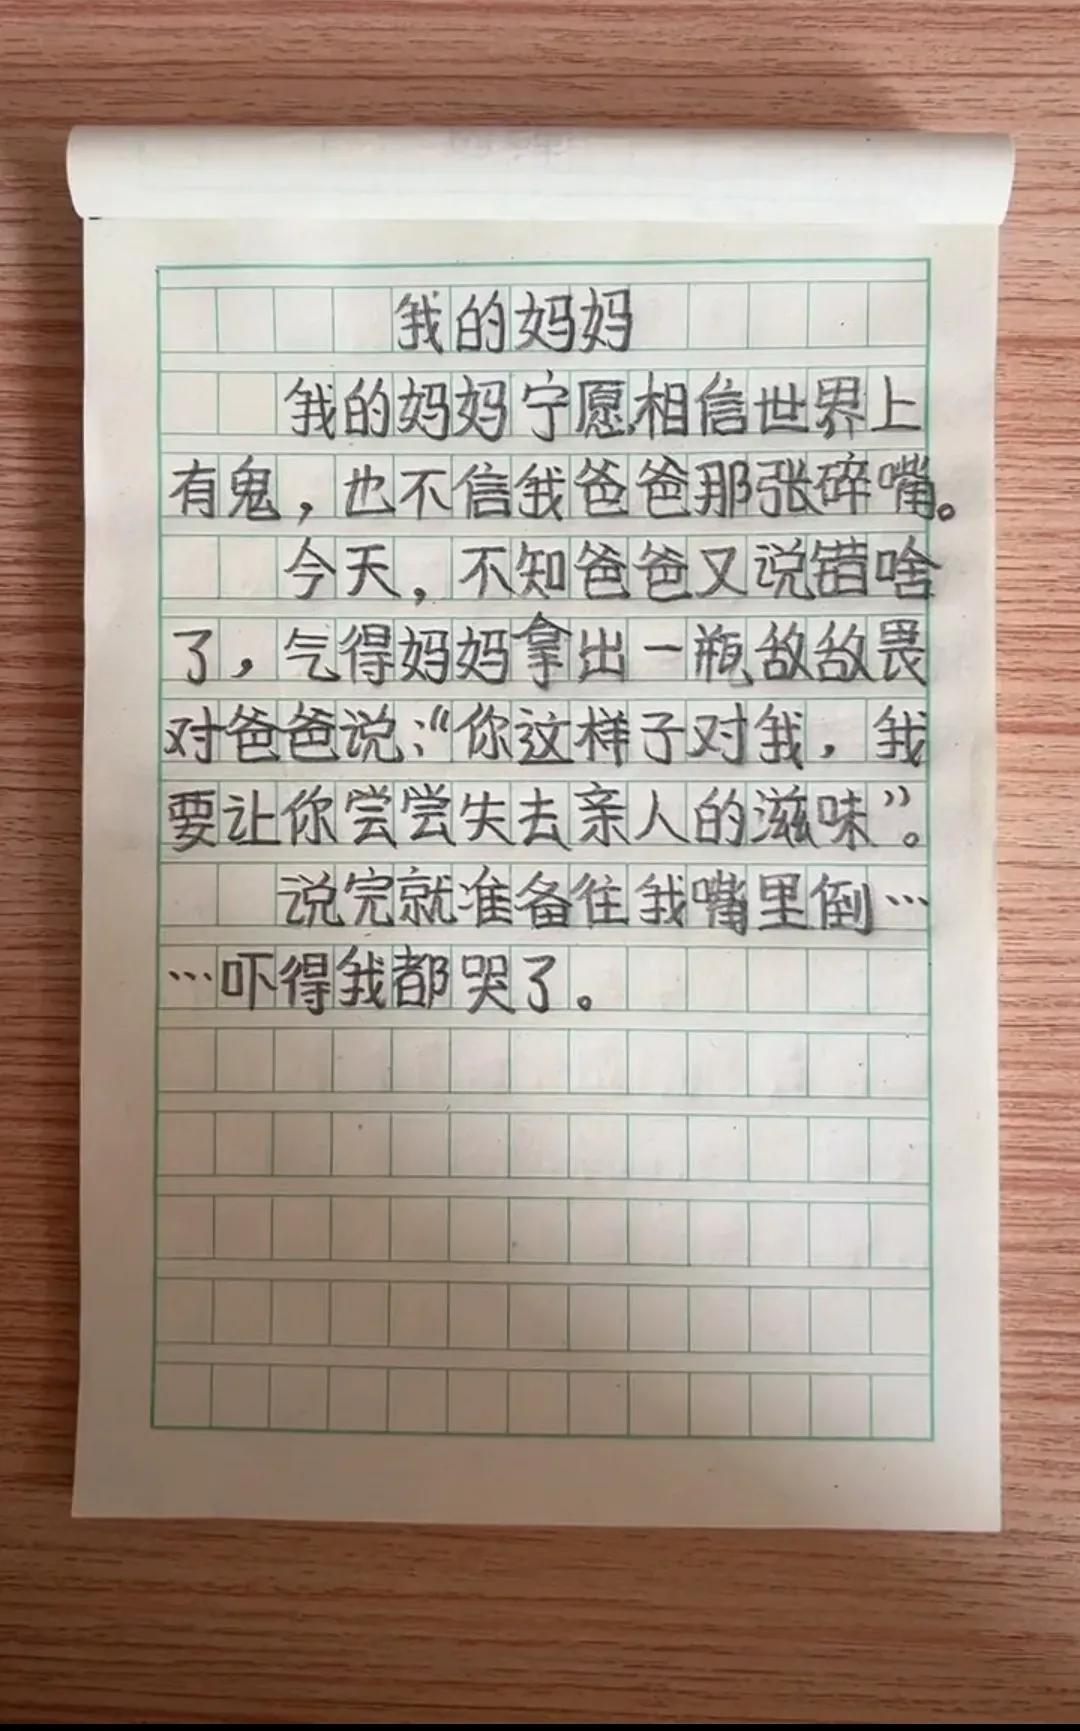 我的妈妈
我的妈妈宁愿相信世界上
有鬼，也不信我爸爸那张碎嘴。
今天，不知爸爸又说错啥
了，气得妈妈拿出一瓶敌敌畏
对爸爸说：“你这样子对我，我
要让你尝尝失去亲人的滋味”。
说完就准备往我嘴里倒…
…吓得我都哭了。